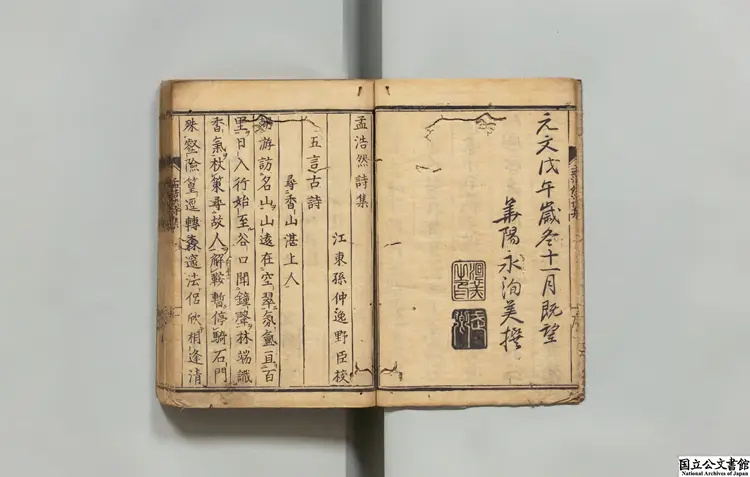 元文戊午歲冬十一月既望
華陽永洵美撰
孟浩然詩集
江東孫仲逸野臣校
五言古詩
尋香山湛上人
朝游訪名山山遠在空翠氛氳亘百
里日入行始至谷口聞鐘聲林端識
香氣杖策尋故人解鞍暫停騎石門
殊壑險篁逕轉森邃法侶欣相逢清
国立公文書館
National Archives of Japan